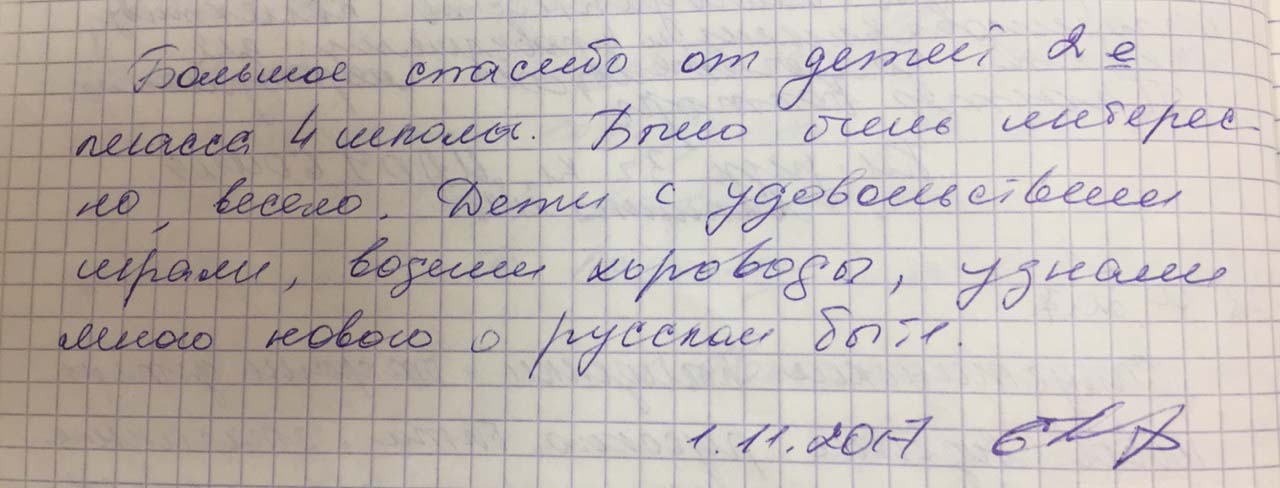 Большое спасибо от детей 2 е
класса 4 школы. Было очень интерес-
но, весело. Дети с удовольствием
играли, водили хороводы, узнали
много нового о русском быте.
1.11.2017